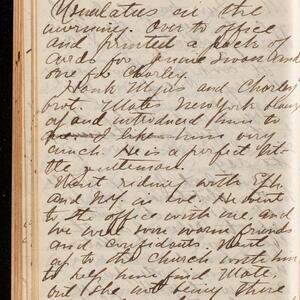 on the
morning. Over to office
and printed a pack of
cards for and
one for Charley.
Hank Myers and Charley
brot. Mates New York
and introduced him to
I like him very
much. He is a perfect
gentleman.
Went riding with Eph.
and N.Y. as we. He went
to the office with me, and
we were soon warm friends
and confidants. Went
up to the Church with him
to help him find Mate,
but she not being there